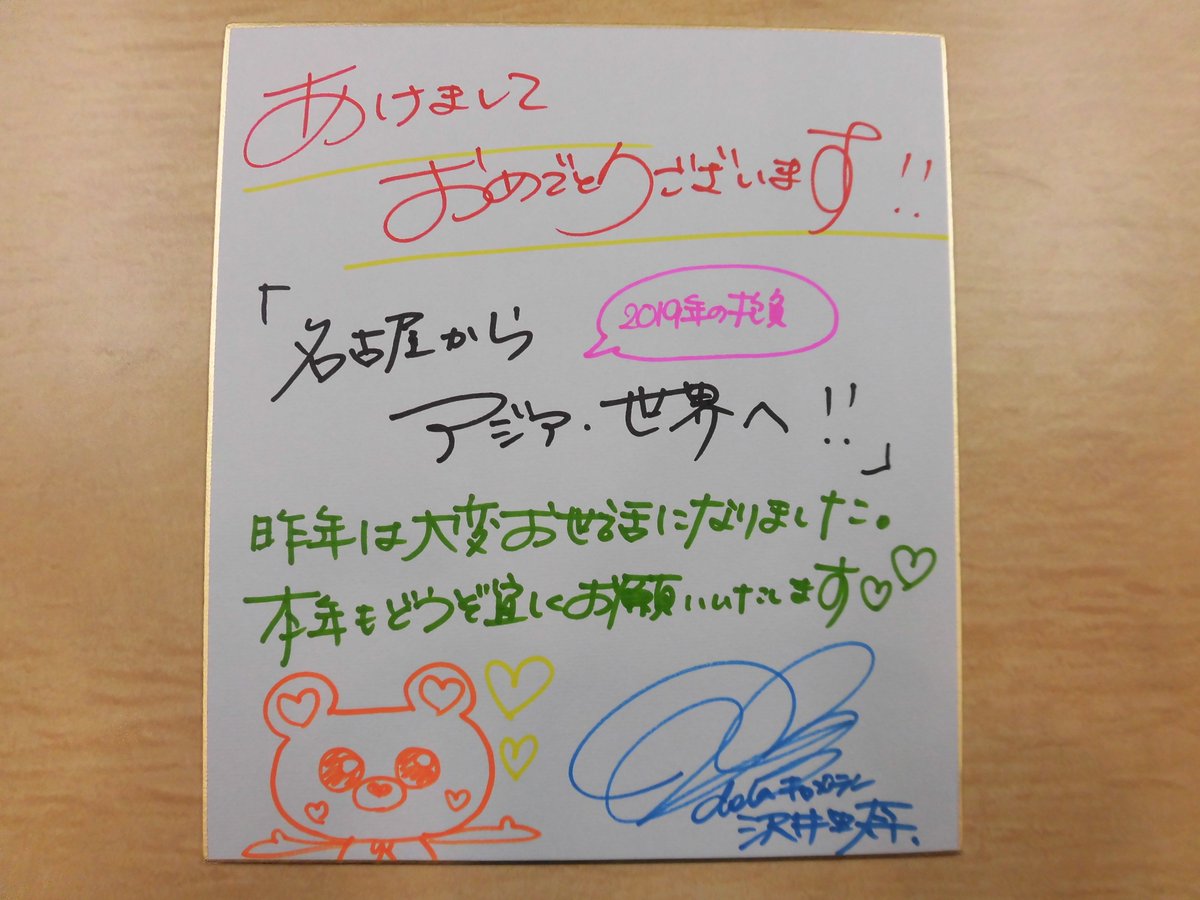 あけまして
おめでとうございます!!
2019年の抱負
「名古屋から
アジア・世界へ!!」
昨年は大変お世話になりました。
本年もどうぞ宜しくお願いいたします♡♡
dela キャプテン
沢井里奈.